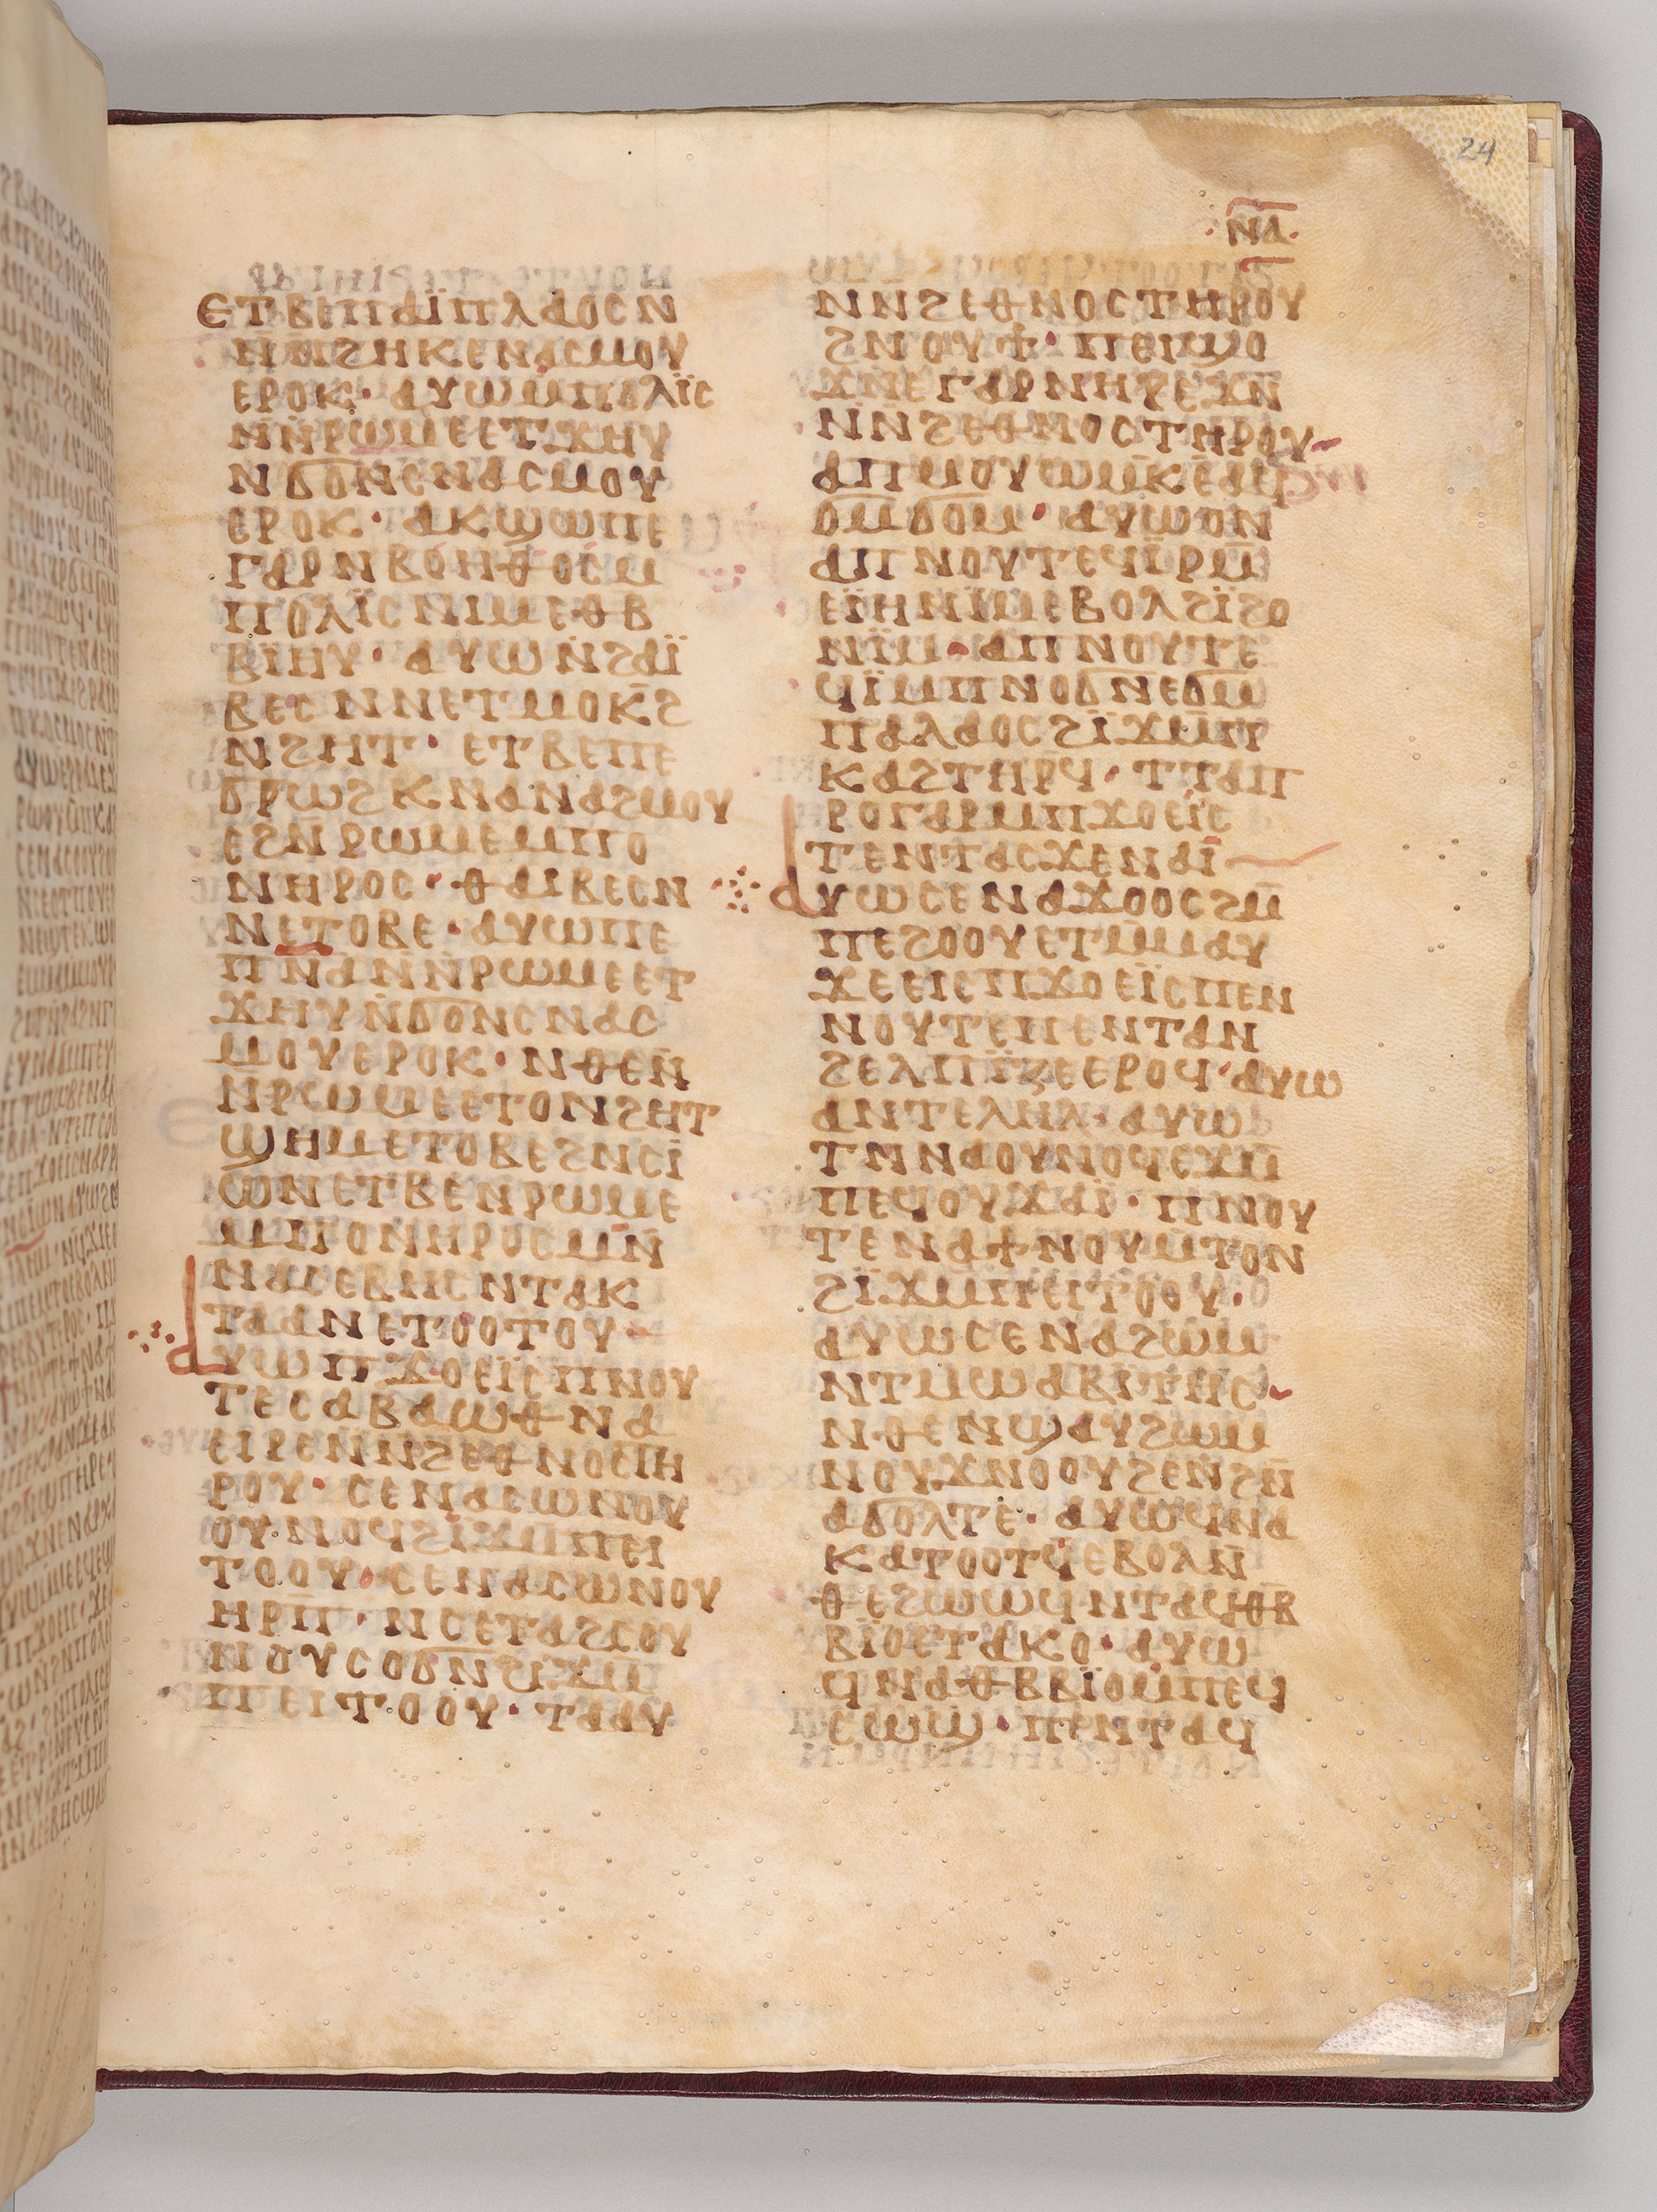 24
ⲚⲆ
ⲈⲦⲂⲈⲠⲀⲒ̈ⲠⲖⲀⲞⲤⲚ
ⲚⲚϨⲎⲔⲈⲚⲀⲤⲘⲞⲨ
ⲈⲢⲞⲔ· ⲀⲨⲰⲘⲠⲞⲖⲒ̈Ⲥ
ⲚⲚ̇ⲢⲰⲘⲈⲈⲦϪⲎⲨ
ⲚϬⲞⲚⲤⲚⲀⲤⲘⲞⲨ
ⲈⲢⲞⲔ· ⲀⲔϢⲰⲠⲈ
ⲄⲀⲢⲚⲂⲞⲎⲐⲞⲤⲘ
ⲠⲞⲖⲒ̈ⲤⲚⲒⲘⲈⲐⲂ
ⲂⲒ̈ⲎⲨ· ⲀⲨⲰⲚ̇ϨⲀⲒ̈
ⲂⲈⲤⲚⲚⲈⲦⲘⲞⲔ̄Ϩ
ⲚϨⲎⲦ· ⲈⲦⲂⲈⲠⲈ
ϬⲢⲰϨⲔⲚⲀⲚⲀϨⲘⲞⲨ
ⲈϨⲚ̄ⲢⲰⲘⲈⲘⲠⲞ
ⲚⲎⲢⲞⲤ· ⲐⲀⲒⲂⲈⲤⲚ
ⲚⲈⲦⲞⲂⲈ· ⲀⲨⲰⲠⲈ
ⲠⲚ̄Ⲁ̄Ⲛ̇Ⲛ̇ⲢⲰⲘⲈⲈⲦ
ϪⲎⲨⲚ̇ϬⲞⲚⲤⲚⲀⲤ
ⲘⲞⲨⲈⲢⲞⲔ· ⲚⲐⲈⲚ̄
ⲚⲢⲰⲘⲈⲈⲦⲞⲚϨⲎⲦ
ϢⲎⲘⲈⲦⲞⲂⲈϨⲚⲤⲒ
ⲰⲚⲈⲦⲂⲈⲚⲢⲰⲘⲈ
ⲘⲠⲞⲚⲎⲢⲞⲤⲘⲚ̄
ⲚⲀⲤⲈⲂⲎⲤⲚⲦⲀⲔ
ⲦⲀⲀⲚⲈⲦⲞⲞⲦⲞⲨ
ⲀⲨⲰⲠϪⲞⲈⲒ̈ⲤⲠⲚⲞⲨ
ⲦⲈⲤⲀⲂⲀⲰⲐⲚⲀ
ⲈⲒⲢⲈⲚⲚϨⲈⲐⲚⲞⲤⲦⲎ
ⲢⲞⲨ· ⲤⲈⲚⲀⲤⲰⲚⲞⲨ
ⲞⲨⲚⲞϤϨⲒϪⲘⲠⲈⲒ
ⲦⲞⲞⲨ· ⲤⲈⲚⲀⲤⲰⲚⲞⲨ
ⲎⲢⲠ̄· ⲚⲤⲈⲦⲀϨⲤⲞⲨ
ⲚⲞⲨⲤⲞϬⲚϨⲒϪⲘ
ⲠⲈⲒⲦⲞⲞⲨ· ⲦⲀⲀⲨ
ⲚⲚϨⲈⲐⲚⲞⲤⲦⲎⲢⲞⲨ
ϨⲚⲞⲨϮ· ⲠⲈⲒϢⲞ
ϪⲚⲈⲄⲀⲢⲚⲎⲢⲈϪⲚ̄
Ⲛ̇ⲚϨⲈⲐⲚⲞⲤⲦⲎⲢⲞⲨ
ⲀⲠⲘⲞⲨⲰⲘⲔ̄ⲈⲀϤ
ϬⲘϬⲞⲘ· ⲀⲨⲰⲞⲚ
ⲀⲠⲚⲞⲨⲦⲈϤⲒ̈ⲢⲘ̄
ⲈⲒ̈ⲎⲚⲒ̈ⲘⲈⲂⲞⲖϨⲒ̈ϨⲞ
ⲚⲒ̈Ⲙ· ⲀⲠⲚⲞⲨⲦⲈ
ϤⲒ̈ⲘⲠⲚⲞϬⲚⲈϬⲘ̄
ⲠⲀⲖⲀⲞⲤϨⲒ̈ϪⲘ̄ⲠⲔ
ⲔⲀϨⲦⲎⲢϤ· ⲦⲦⲀⲠ
ⲢⲞⲄⲀⲢⲘⲠϪⲞⲈⲒ̈Ⲥ
ⲦⲈⲚⲦⲀⲤϪⲈⲚⲀⲒ̈
ⲀⲨⲰⲤⲈⲚⲀϪⲞⲞⲤϨⲘ̄
ⲠⲈϨⲞⲞⲨⲈⲦⲘ̄ⲘⲀⲨ
ϪⲈⲈⲒⲤⲠϪⲞⲈⲒ̈ⲤⲠⲈⲚ
ⲚⲞⲨⲦⲈⲠⲈⲚⲦⲀⲚ
ϨⲈⲖⲠⲒ̈ⲌⲈⲈⲢⲞϤ· ⲀⲨⲰ
ⲀⲚⲦⲈⲖⲎⲖ· ⲀⲨⲰ
ⲦⲚⲚⲀⲞⲨⲚⲞϤⲈϪⲘ̄
ⲠⲈϤⲞⲨϪⲀⲒ̈· ⲠⲚⲞⲨ
ⲦⲈⲚⲀϮⲚⲞⲨⲘⲦⲞⲚ
ϨⲒ̈ϪⲘⲠⲈⲒⲦⲞⲞⲨ·
ⲀⲨⲰⲤⲈⲚⲀϨⲰⲘ
ⲚⲦⲘⲰⲀⲂⲒⲦⲎⲤ
ⲚⲐⲈⲚϢⲀⲨϨⲰⲘ
ⲚⲞⲨϪⲚⲞⲞⲨϨⲈⲚϨⲚ̄
ⲀϬⲞⲖⲦⲈ· ⲀⲨⲰϤⲚⲀ
ⲔⲀⲦⲞⲞⲦϤⲈⲂⲞⲖⲚ̄
ⲐⲈϨⲰⲰϤⲚⲦⲀϤⲐⲂ
ⲂⲒ̈ⲞⲈⲦⲀⲔⲞ· ⲀⲨⲰ
ϤⲚⲀⲐⲂⲂⲒ̈ⲞⲘⲠⲈϤ
ⲤⲰϢ· ⲠⲈⲚⲦⲀϤ